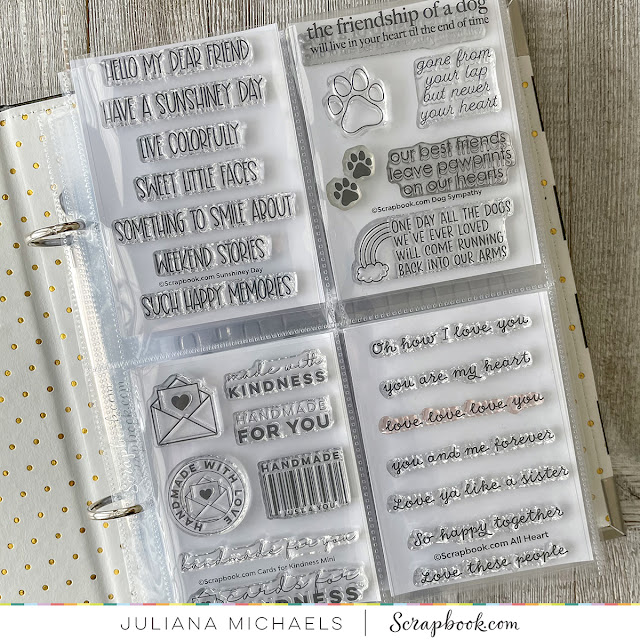 HELLO MY DEAR FRIEND
HAVE A SUNSHINEY DAY
LIVE COLORFULLY
SWEET LITTLE FACES
SOMETHING TO SMILE ABOUT
WEEKEND STORIES
©Scrapbook.com Sunshiney Day
SUCH HAPPY MEMORIES
the friendship of a dog
will live in your heart til the end of time
gone from
your lap
but never
your heart
our best friends
leave pawprints
on our hearts
©Scrapbook.com Dog Sympathy
ONE DAY ALL THE DOGS
WE'VE EVER LOVED
WILL COME RUNNING
BACK INTO OUR ARMS
made with
KINDNESS
HANDMADE
FOR YOU
HANDMADE WITH LOVE
HANDMADE
JUST 4 YOU
handmade for you
©Scrapbook.com Cards for Kindness Mini
cards for
KINDNESS
Oh how I love you
you are my heart
love love love you
you and me forever
Love ya like a sister
So happy together
©Scrapbook.com All Heart
Love these people
JULIANA MICHAELS | Scrapbook.com